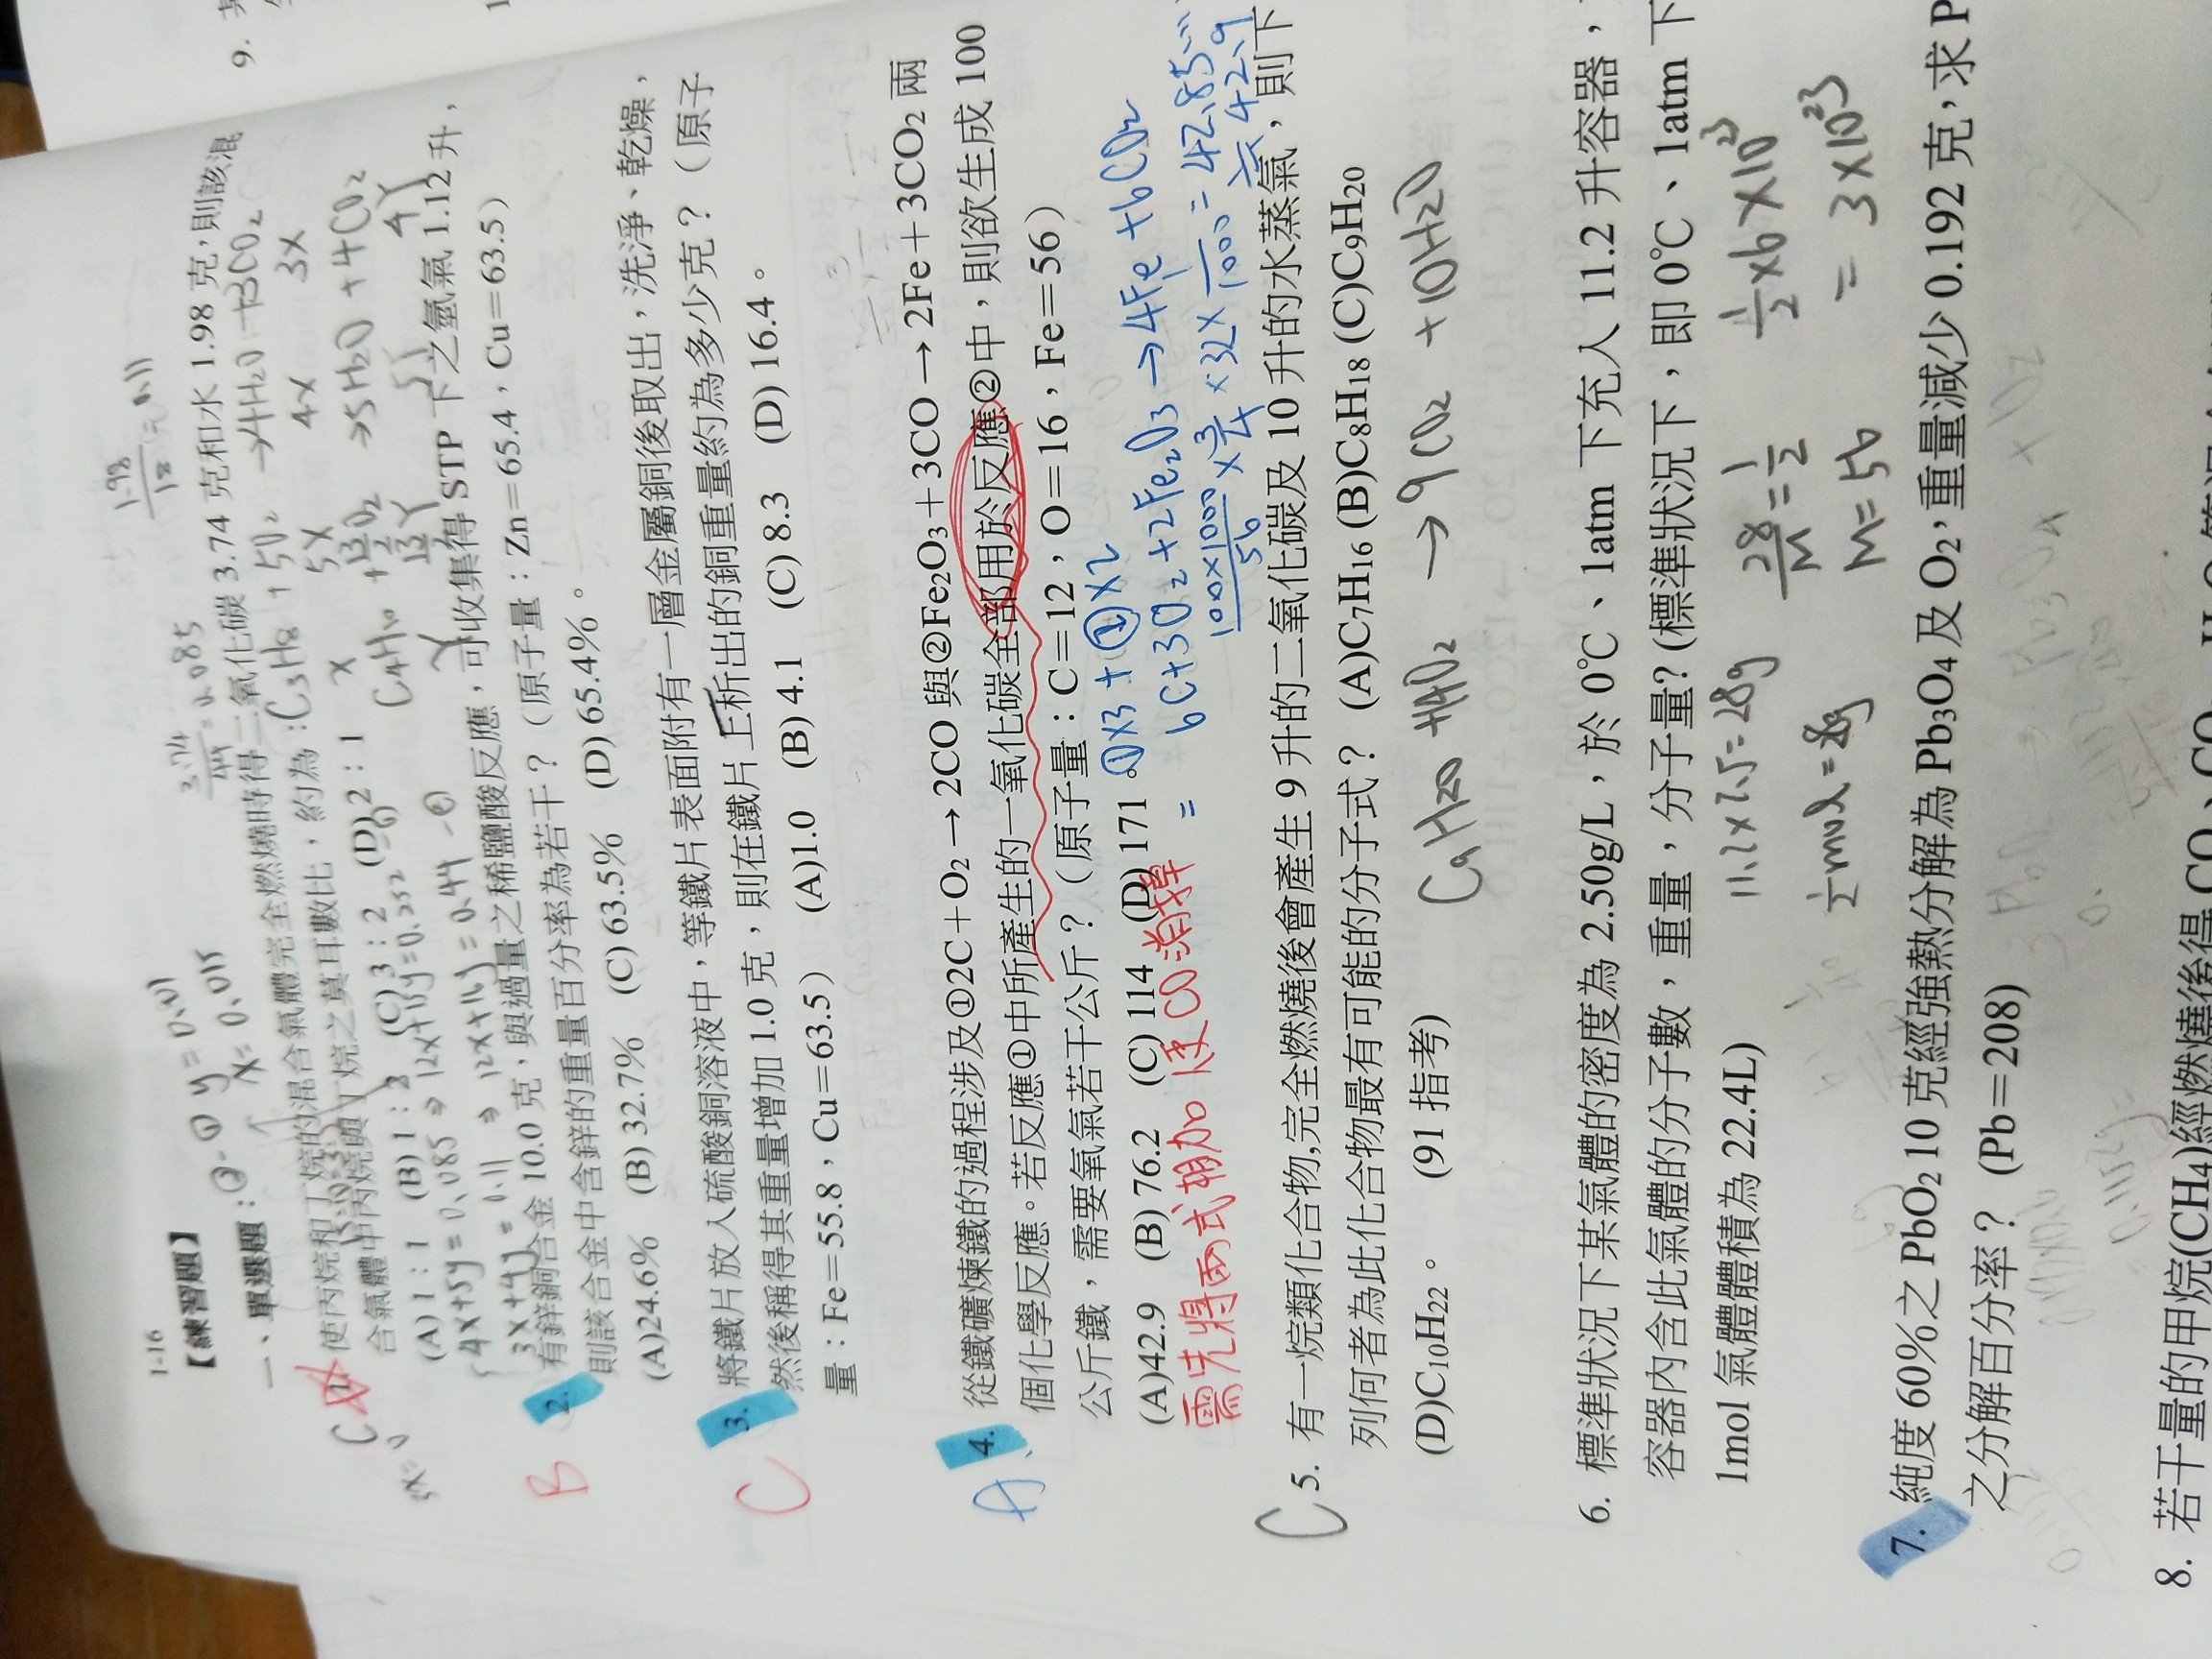 9.
1-16
【練習題】
一、單選題：② - ① y = 0.01
x = 0.015
3.74/44 = 0.085
1.98/18 = 0.11
C 1. 使丙烷和丁烷的混合氣體完全燃燒時得二氧化碳 3.74 克和水 1.98 克，則該混
合氣體中丙烷與丁烷之莫耳數比，約為：C3H8 + 5O2 → 4H2O + 3CO2
x 5x 4x 3x
(A) 1：1 (B) 1：2 (C) 3：2 (D) 2：1
C4H10 + 13/2 O2 → 5H2O + 4CO2
y 13/2 y 5y 4y
B 2. 有鋅銅合金 10.0 克，與過量之稀鹽酸反應，可收集得 STP 下之氫氣 1.12 升，
則該合金中含鋅的重量百分率為若干？（原子量：Zn＝65.4，Cu＝63.5）
(A)24.6% (B) 32.7% (C) 63.5% (D) 65.4%。
C 3. 將鐵片放入硫酸銅溶液中，等鐵片表面附有一層金屬銅後取出，洗淨、乾燥，
然後稱得其重量增加 1.0 克，則在鐵片上析出的銅重量約為多少克？（原子
量：Fe＝55.8，Cu＝63.5） (A)1.0 (B) 4.1 (C) 8.3 (D) 16.4。
A 4. 從鐵礦煉鐵的過程涉及①2C＋O2→2CO 與②Fe2O3＋3CO→2Fe＋3CO2 兩
個化學反應。若反應①中所產生的一氧化碳全部用於反應②中，則欲生成 100
公斤鐵，需要氧氣若干公斤？（原子量：C＝12，O＝16，Fe＝56）
(A)42.9 (B) 76.2 (C) 114 (D) 171。①x3 + ②x2
需先將兩式相加 使CO消掉
= 6C+3O2+2Fe2O3 → 4Fe+6CO2
100x1000/56 x 3/4 x 32 x 1/1000 = 42.85...
≒ 42.9
C 5. 有一烷類化合物,完全燃燒後會產生 9 升的二氧化碳及 10 升的水蒸氣，則下
列何者為此化合物最有可能的分子式？ (A)C7H16 (B)C8H18 (C)C9H20
(D)C10H22。 (91 指考)
C9H20 + 14O2 → 9CO2 + 10H2O
6. 標準狀況下某氣體的密度為 2.50g/L，於 0℃、1atm 下充入 11.2 升容器，
容器內含此氣體的分子數，重量，分子量? (標準狀況下，即 0℃、1atm 下
1mol 氣體體積為 22.4L)
11.2x2.5=28g
28/M = 1/2
1/2 x6x10^23
1/2 mol = 28g
M = 56
= 3x10^23
7. 純度 60%之 PbO2 10 克經強熱分解為 Pb3O4 及 O2，重量減少 0.192 克，求 P
之分解百分率？ (Pb＝208)
8. 若干量的甲烷(CH4)經燃燒後得 CO、CO